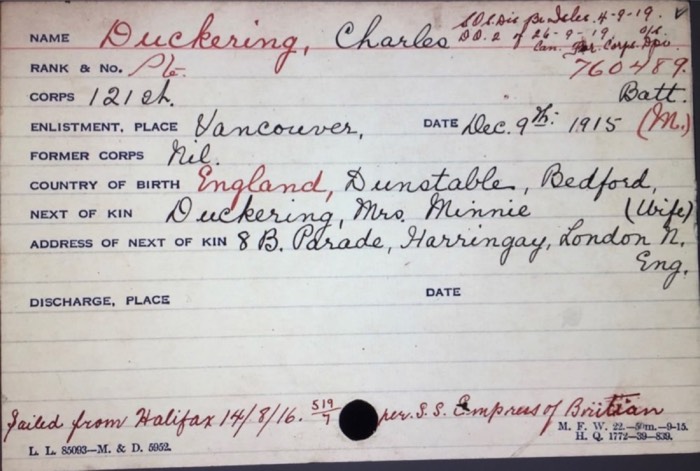 S.O.S. Dis 4-9-19. ✓
NAME Duckering, Charles D.O. 2 of 26-9-19 o/s
Can. For. Corps. Dpo.
RANK & No. Pte. 760489.
CORPS 121st. Batt.
ENLISTMENT, PLACE Vancouver, DATE Dec. 9th: 1915 (M.)
FORMER CORPS Nil.
COUNTRY OF BIRTH England, Dunstable, Bedford,
NEXT OF KIN Duckering, Mrs. Minnie (Wife)
ADDRESS OF NEXT OF KIN 8 B. Parade, Harringay, London N.
Eng.
DISCHARGE, PLACE DATE
Sailed from Halifax 14/8/16. 519/7 per. S.S. Empress of Britian
L. L. 85093—M. & D. 5952.
M. F. W. 22.—50m.—9-15.
H. Q. 1772—39—839.